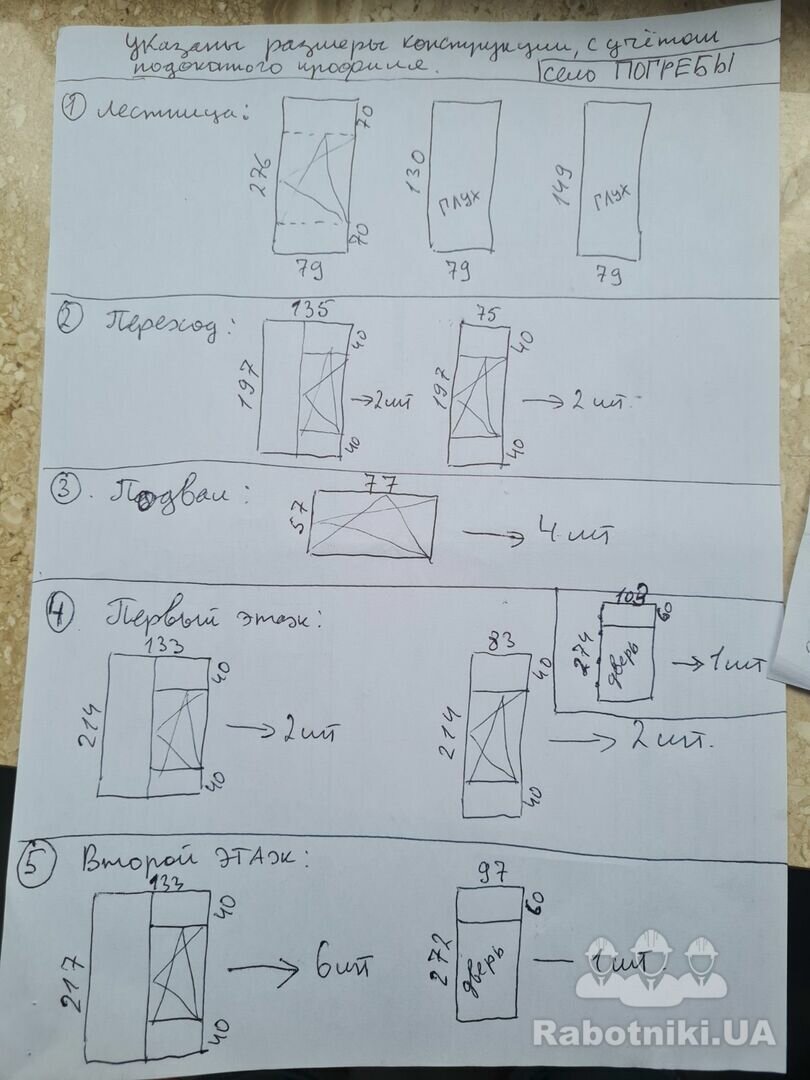 Указаны размеры конструкции, с учётом
подокатого профиля.
село ПОГРЕБЫ
① Лестница:
276
70
70
79
130
глух
79
149
глух
79
② Переход:
135
197
40
40
→ 2шт
75
197
40
40
→ 2 шт.
③. Подвал:
77
57
→ 4 шт
④. Первый этаж:
133
214
40
40
→ 2шт
83
214
40
40
→ 2 шт.
103
60
274
дверь
→ 1шт
⑤ Второй ЭТАЖ:
133
217
40
40
→ 6шт
97
60
272
дверь
— 1шт.
Rabotniki.UA